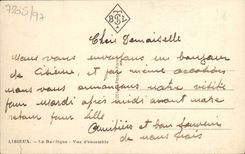 7205/97
BSL
Chère Demoiselle
Nous vous envoyons un bonjour
de Lisieux, et par même occasion
nous vous annonçons notre visite
pour mardi après midi avant notre
retour pour Lille
Amitiés et bon souvenir
de nous trois
LISIEUX. - La Basilique - Vue d'ensemble